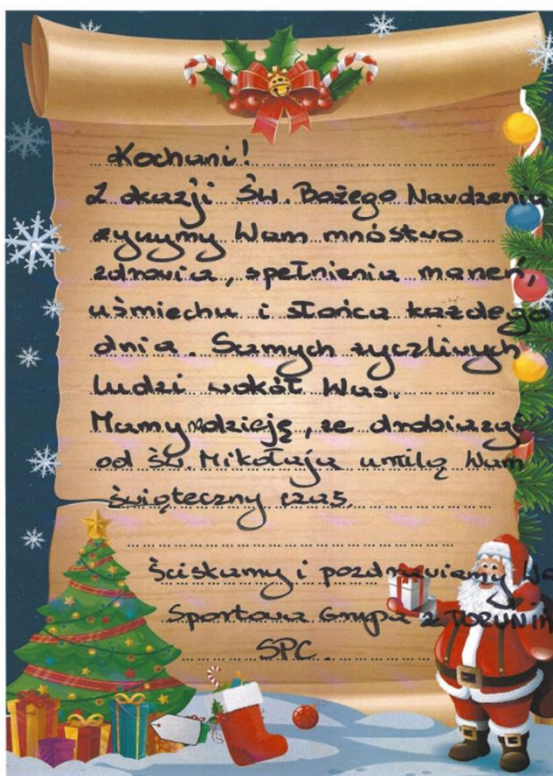 Kochani!
Z okazji Św. Bożego Narodzenia
życzymy Wam mnóstwo
zdrowia, spełnienia marzeń,
uśmiechu i słońca każdego
dnia. Samych życzliwych
ludzi wokół Was.
Mamy nadzieję, że drobiazgi
od św. Mikołaja umilą Wam
świąteczny czas.
Ściskamy i pozdrawiamy
Sportowa Grupa z TORUNIA
SPC.